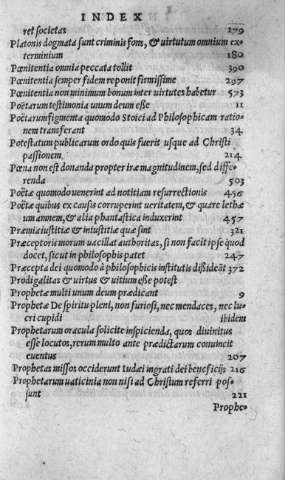 INDEX
ret societas 279
Platonis dogmata sunt criminis fons, & uirtutum omnium ex-
terminium 180
Pœnitentia omnia peccata tollit 390
Pœnitentia semper fidem reponit firmissime 297
Pœnitentia non minimum bonum inter uirtutes habetur 573
Poëtarum testimonia unum deum esse 11
Poëtarum figmenta quomodo Stoici ad Philosophicam ratio-
nem transferant 34
Potestatum publicarum ordo quis fuerit usque ad Christi
passionem 214
Pœna non est donanda propter iræ magnitudinem, sed diffe-
renda 503
Poëtæ quomodo uenerint ad notitiam resurrectionis 456
Poëtæ quibus ex causis corruperint ueritatem, & quare lethæ
um amnem, & alia phantastica induxerint 457
Præmia iustitiæ & iniustitiæ quæ sint 321
Præceptoris morum uacillat authoritas, si non facit ipse quod
docet, sicut in philosophis patet 247
Præcepta dei quomodo à philosophicis institutis dissideāt 372
Prodigalitas & uirtus & uitium esse potest
Prophetæ multi unum deum prædicant 9
Prophetæ Dei spiritu pleni, non furiosi, nec mendaces, nec lu-
cri cupidi ibidem
Prophetarum oracula solicite inspicienda, quos diuinitus
esse locutos, rerum multo ante prædictarum conuincit
euentus 207
Prophetas missos occiderunt Iudæi ingrati dei beneficijs 216
Prophetarum uaticinia non nisi ad Christum referri pos-
sunt 221
Prophe-